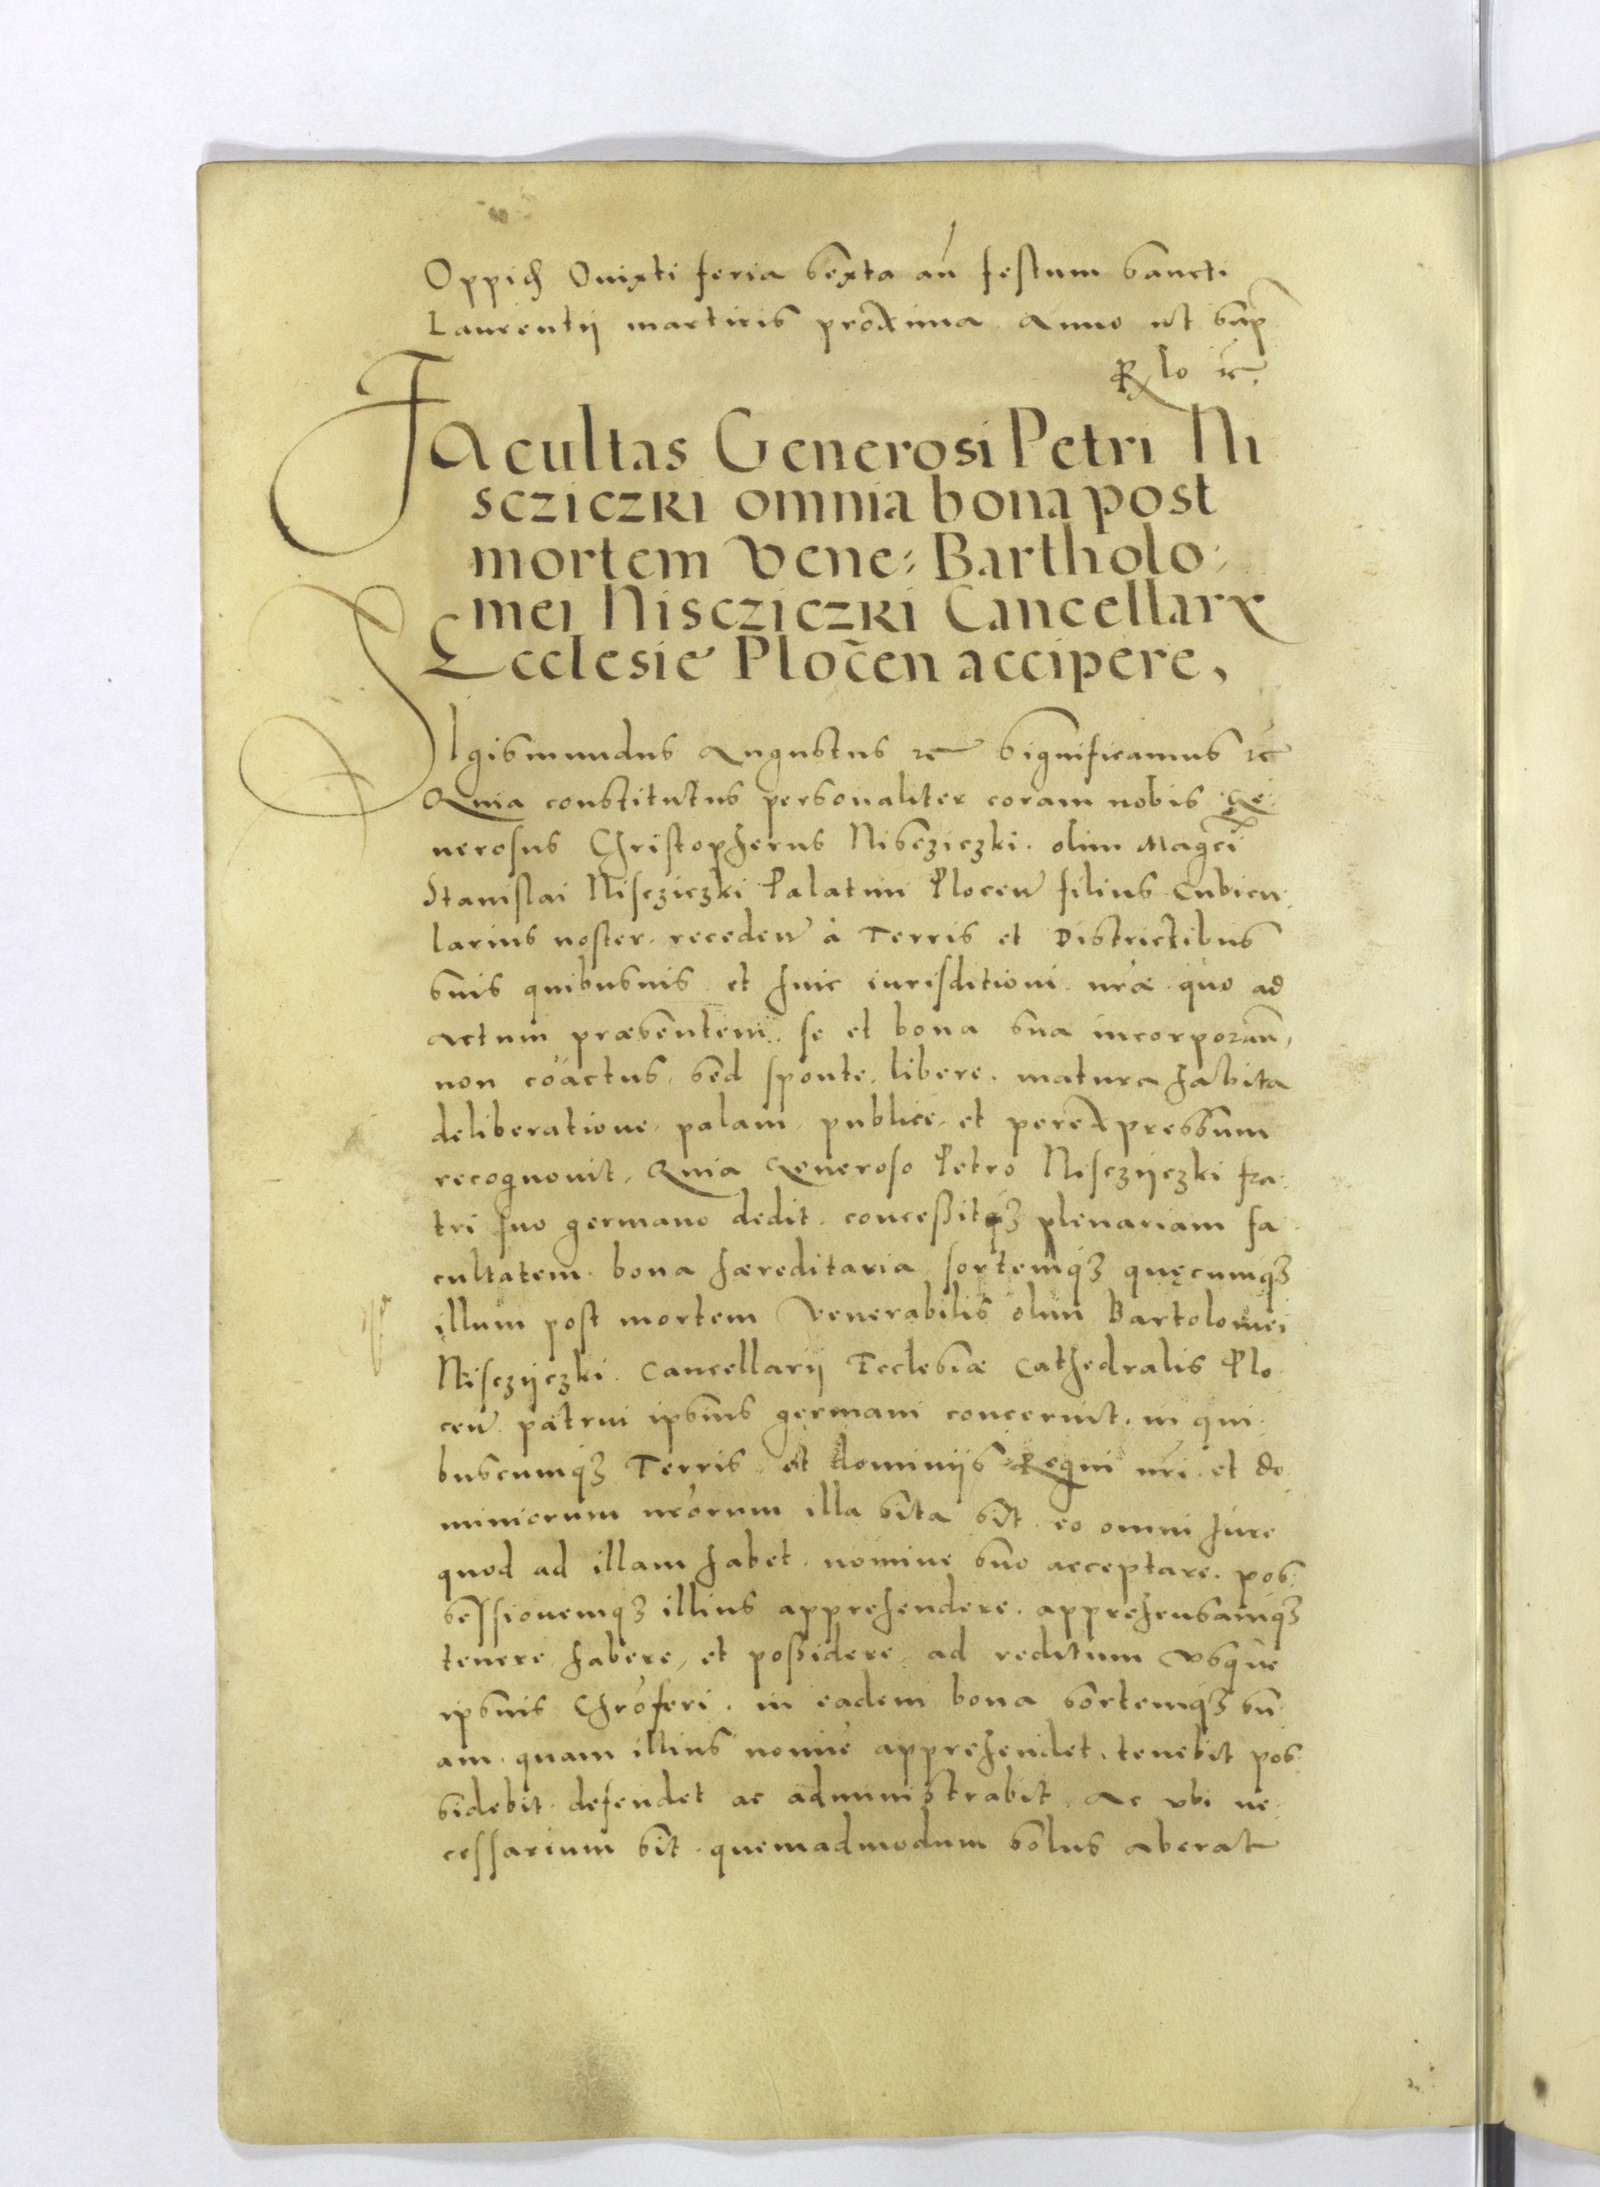 Oppid Quixti feria sexta añ festum Sancti
Laurentij martiris proxima Anno ut sup
Rx lo rc.
Facultas Generosi Petri Ni
scziczki omnia bona post
mortem Vene: Bartholo:
mei Niscziczki Cancellarx
Ecclesie Plocen accipere,
Sigismundus Augustus rc Significamus rc
Quia constitutus personaliter coram nobis Ge:
nerosus Christopherus Niscziczki. olim Magci
Stanislai Niscziczki Palatini Plocen filius Cubicu
larius noster. receden à Terris et Districtibus
suis quibusuis et huic iurisditioni nrae quo ad
actum praesentem. se et bona sua incorporan,
non coactus, sed sponte, libere. matura habita
deliberatione, palam, publice, et perexpressum
recognouit, Quia Generoso Petro Nisczijczki fra:
tri suo germano dedit. concessitqȝ plenariam fa
cultatem. bona haereditaria sortemqȝ quęcumqȝ
illum post mortem Venerabilis olim Bartolomei
Nisczijczki. Cancellarij Ecclesiae Cathedralis Plo
cen patrui ipsius germani concernit. in qui
buscumqȝ Terris et dominijs Regni nri. et do
miniorum nrorum illa sita sit. eo omni iure
quod ad illam habet. nomine suo acceptare. pos:
sessionemqȝ illius apprehendere. apprehensamqȝ
tenere habere, et possidere, ad reditum usque
ipsius Chroferi. in eadem bona sortemqȝ su
am. quam illius nomine apprehendet. tenebit pos
sidebit. defendet ac administrabit. Ac ubi ne
cessarium sit. quemadmodum solus aberat